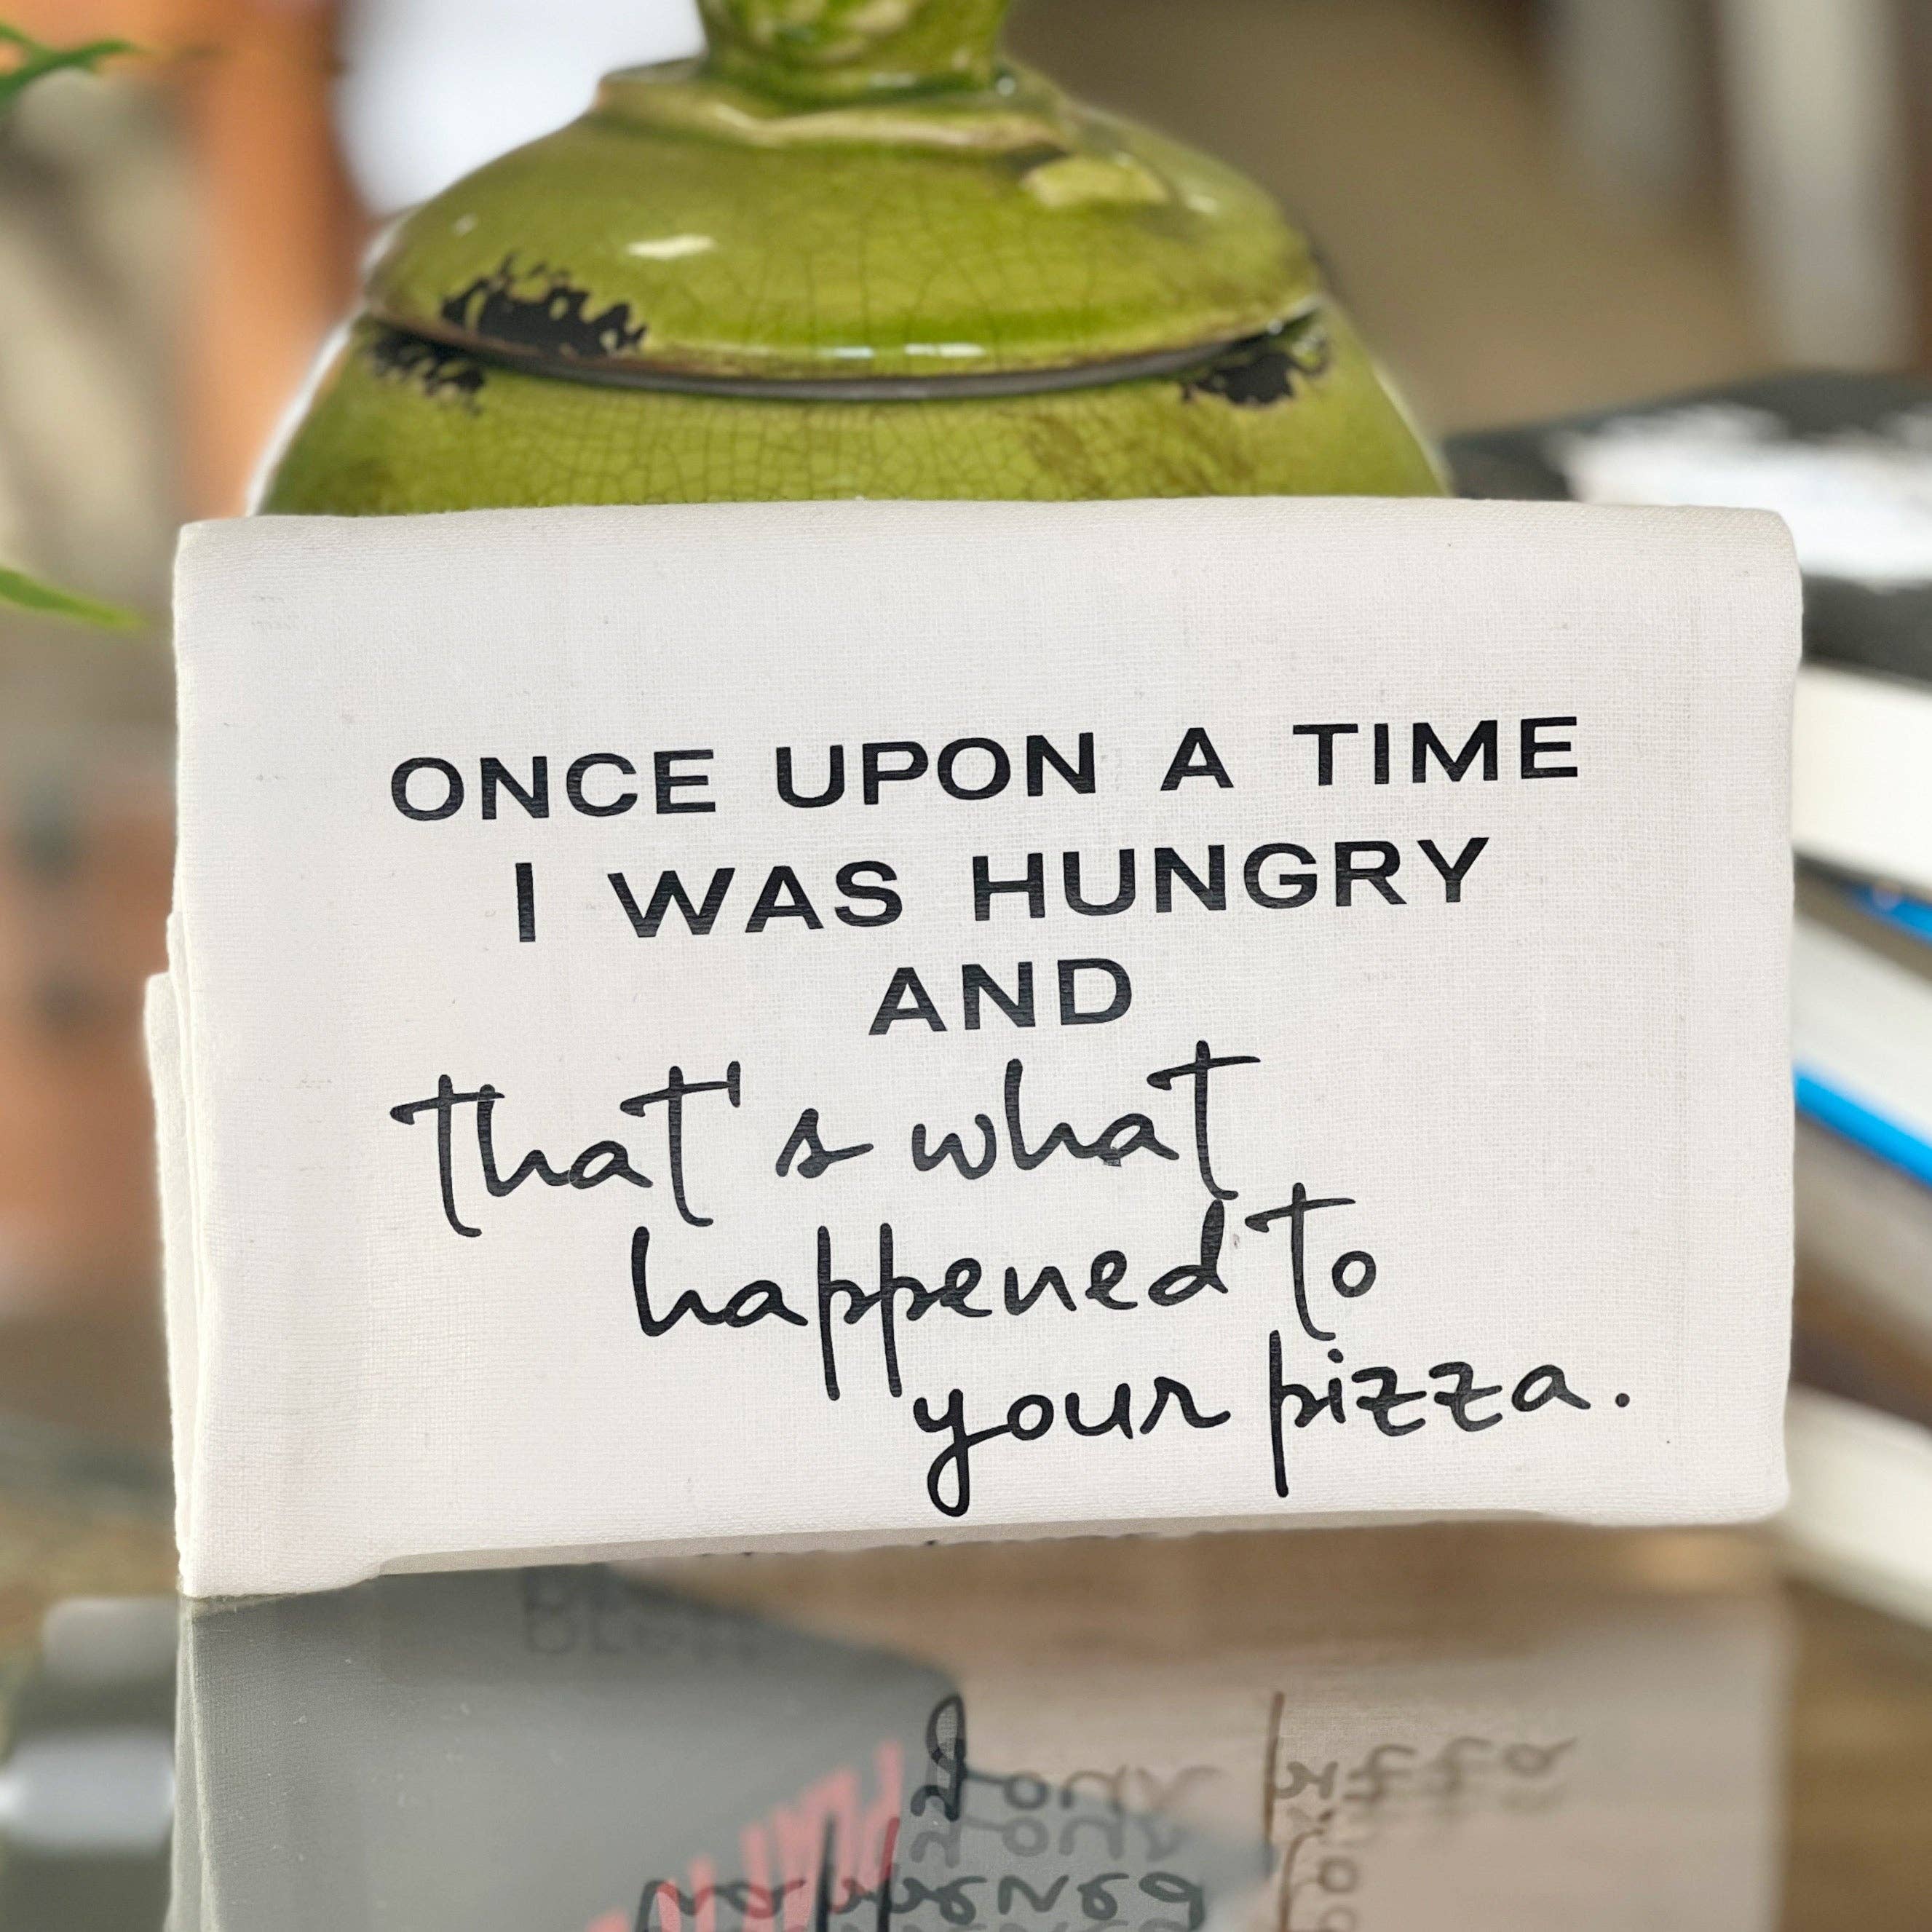 ONCE UPON A TIME
I WAS HUNGRY
AND
that's what
happened to
your pizza.